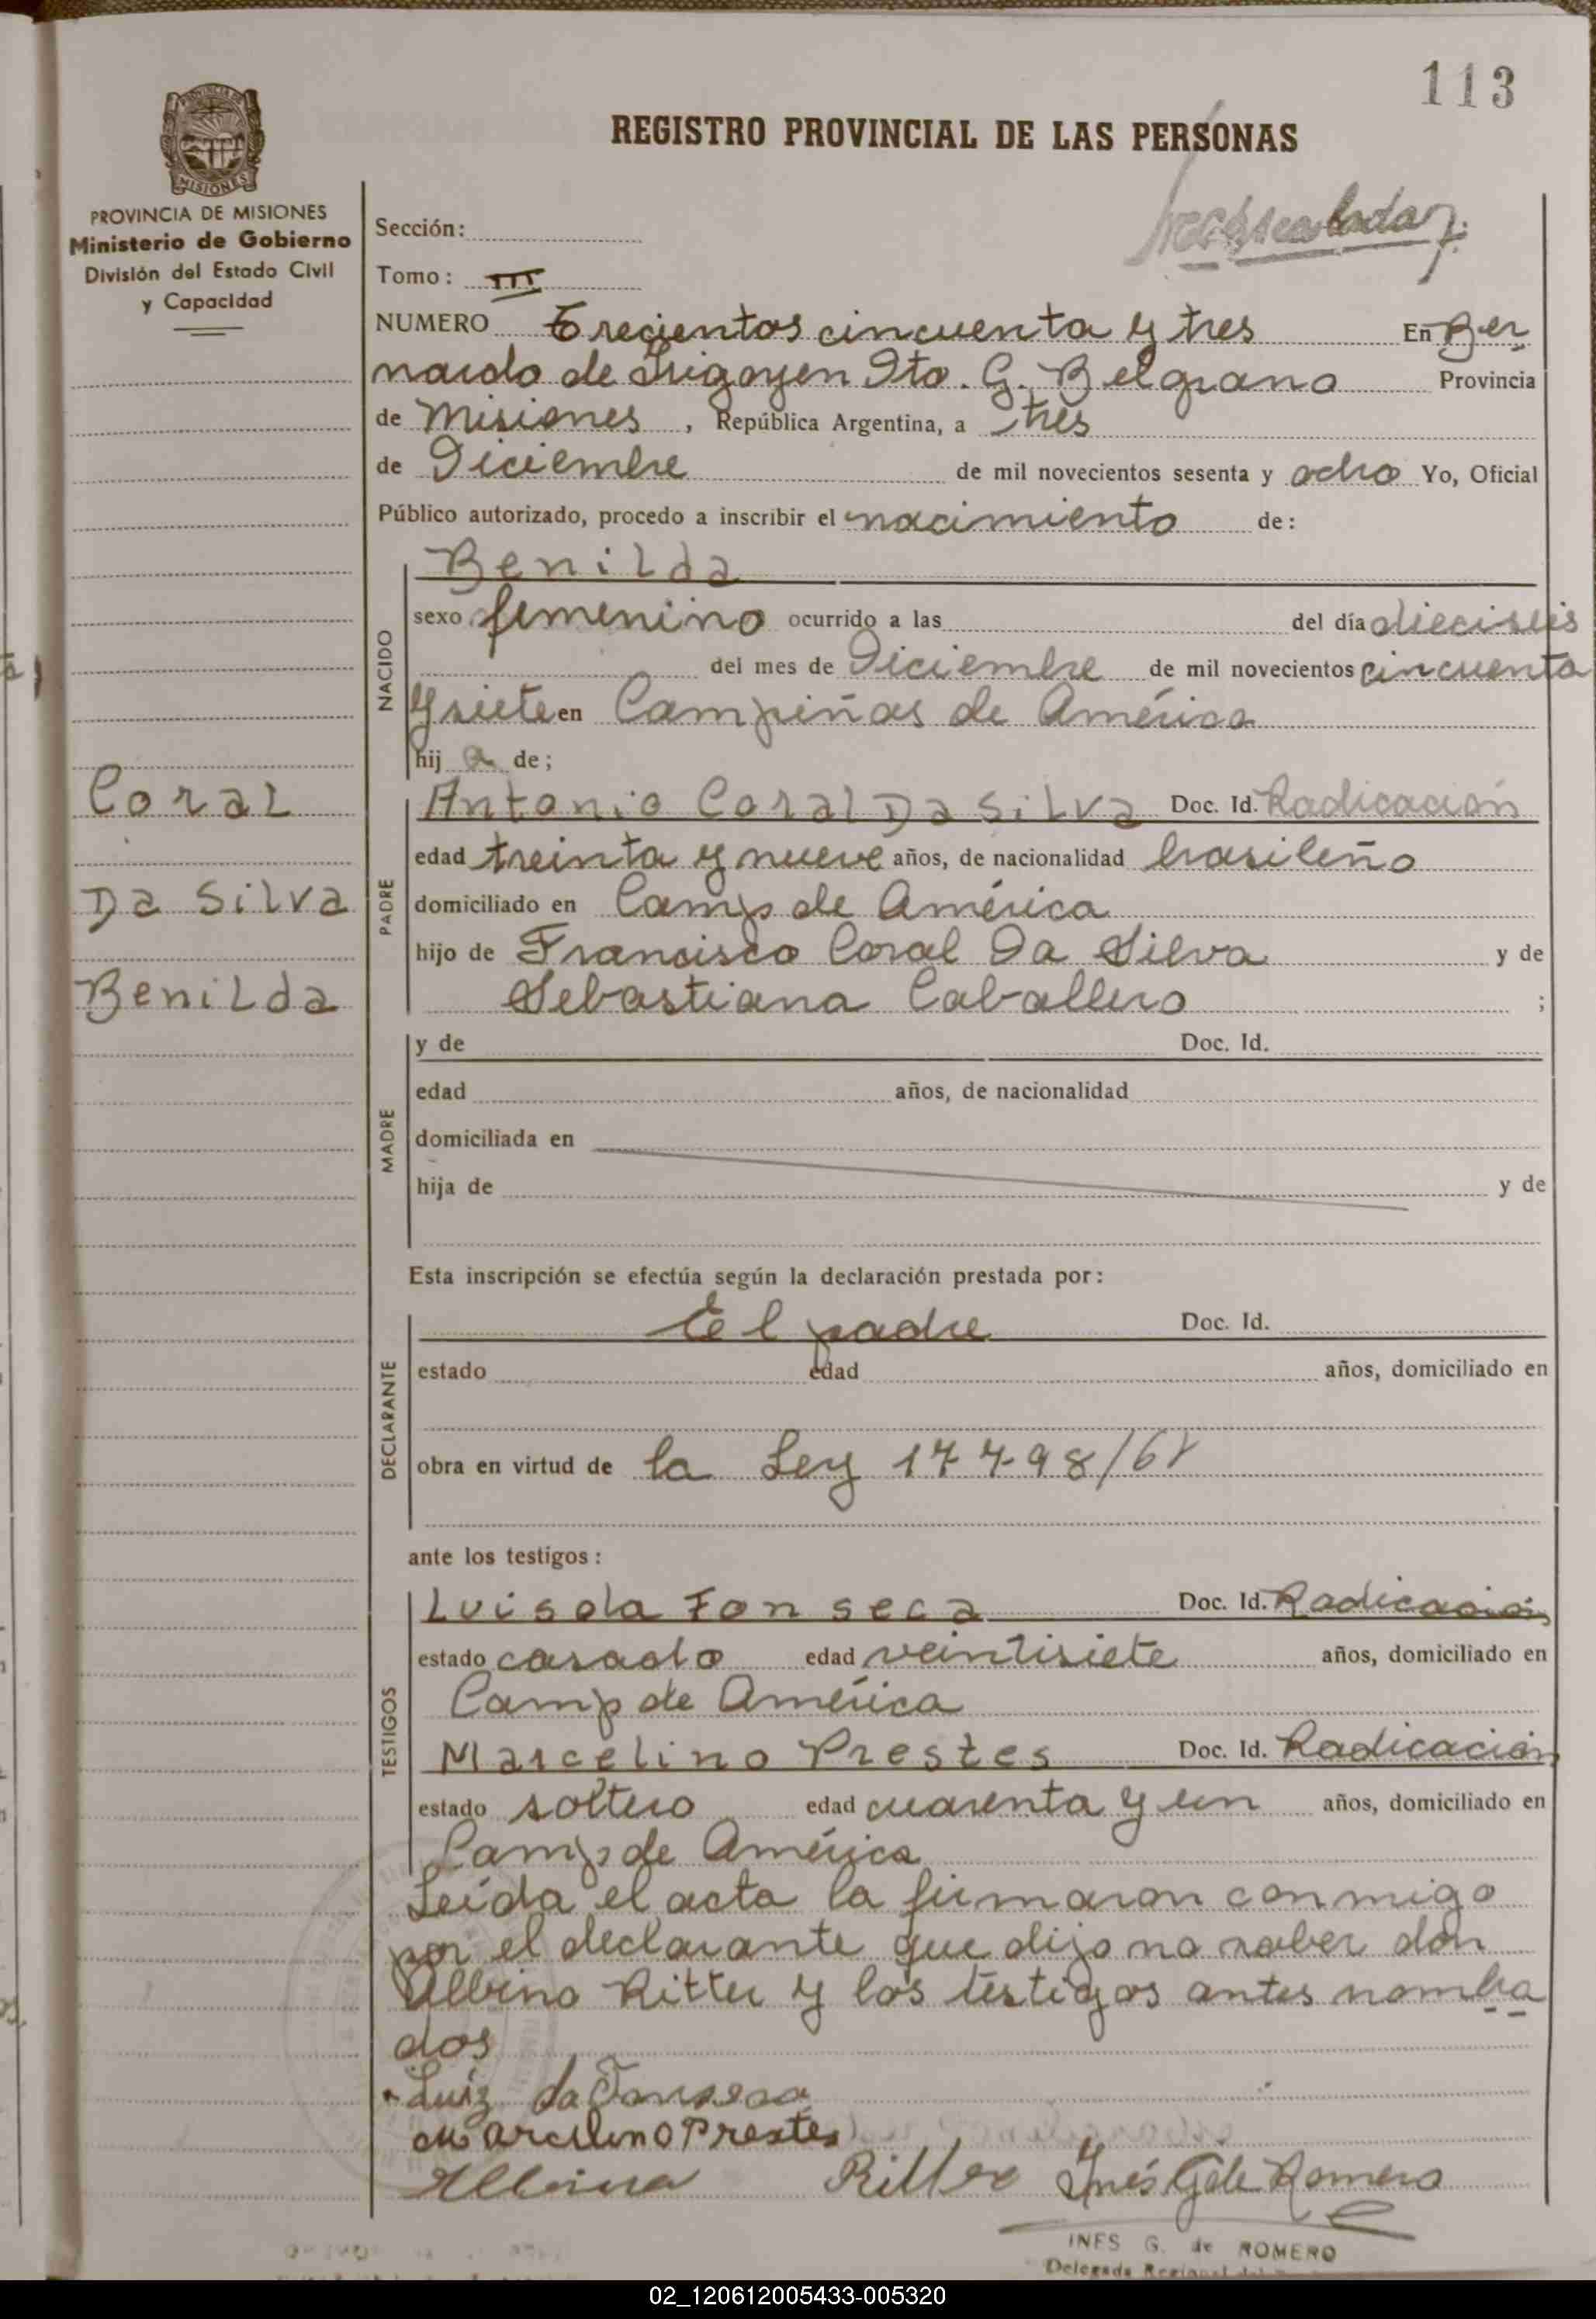 113
REGISTRO PROVINCIAL DE LAS PERSONAS
MISIONES
PROVINCIA DE MISIONES
Ministerio de Gobierno
División del Estado Civil
y Capacidad
Sección:
Tomo: III
NUMERO Trecientos cincuenta y tres En Ber
nardo de Irigoyen Dto. G. Belgrano Provincia
de Misiones, República Argentina, a tres
de Diciembre de mil novecientos sesenta y ocho Yo, Oficial
Público autorizado, procedo a inscribir el nacimiento de:
Benilda
NACIDO
sexo femenino ocurrido a las del día dieciseis
del mes de Diciembre de mil novecientos cincuenta
y siete en Campiñas de América
hij a de;
Coral
Da Silva
Benilda
PADRE
Antonio Coral Da Silva Doc. Id. Radicación
edad treinta y nueve años, de nacionalidad brasileño
domiciliado en Camp de América
hijo de Francisco Coral Da Silva y de
Sebastiana Caballero ;
MADRE
y de Doc. Id.
edad años, de nacionalidad
domiciliada en
hija de y de
Esta inscripción se efectúa según la declaración prestada por:
DECLARANTE
El padre Doc. Id.
estado edad años, domiciliado en
obra en virtud de la Ley 17798/68
ante los testigos:
TESTIGOS
Luis da Fonseca Doc. Id. Radicación
estado casado edad veintisiete años, domiciliado en
Camp de América
Marcelino Prestes Doc. Id. Radicación
estado soltero edad cuarenta y un años, domiciliado en
Camp de América
Leída el acta la firmaron conmigo
por el declarante que dijo no saber don
Albino Ritter y los testigos antes nombra
dos
Luiz da Fonseca
Marcelino Prestes
Albino Ritter Inés G de Romero
INES G. de ROMERO
Delegada Regional del
02_120612005433-005320